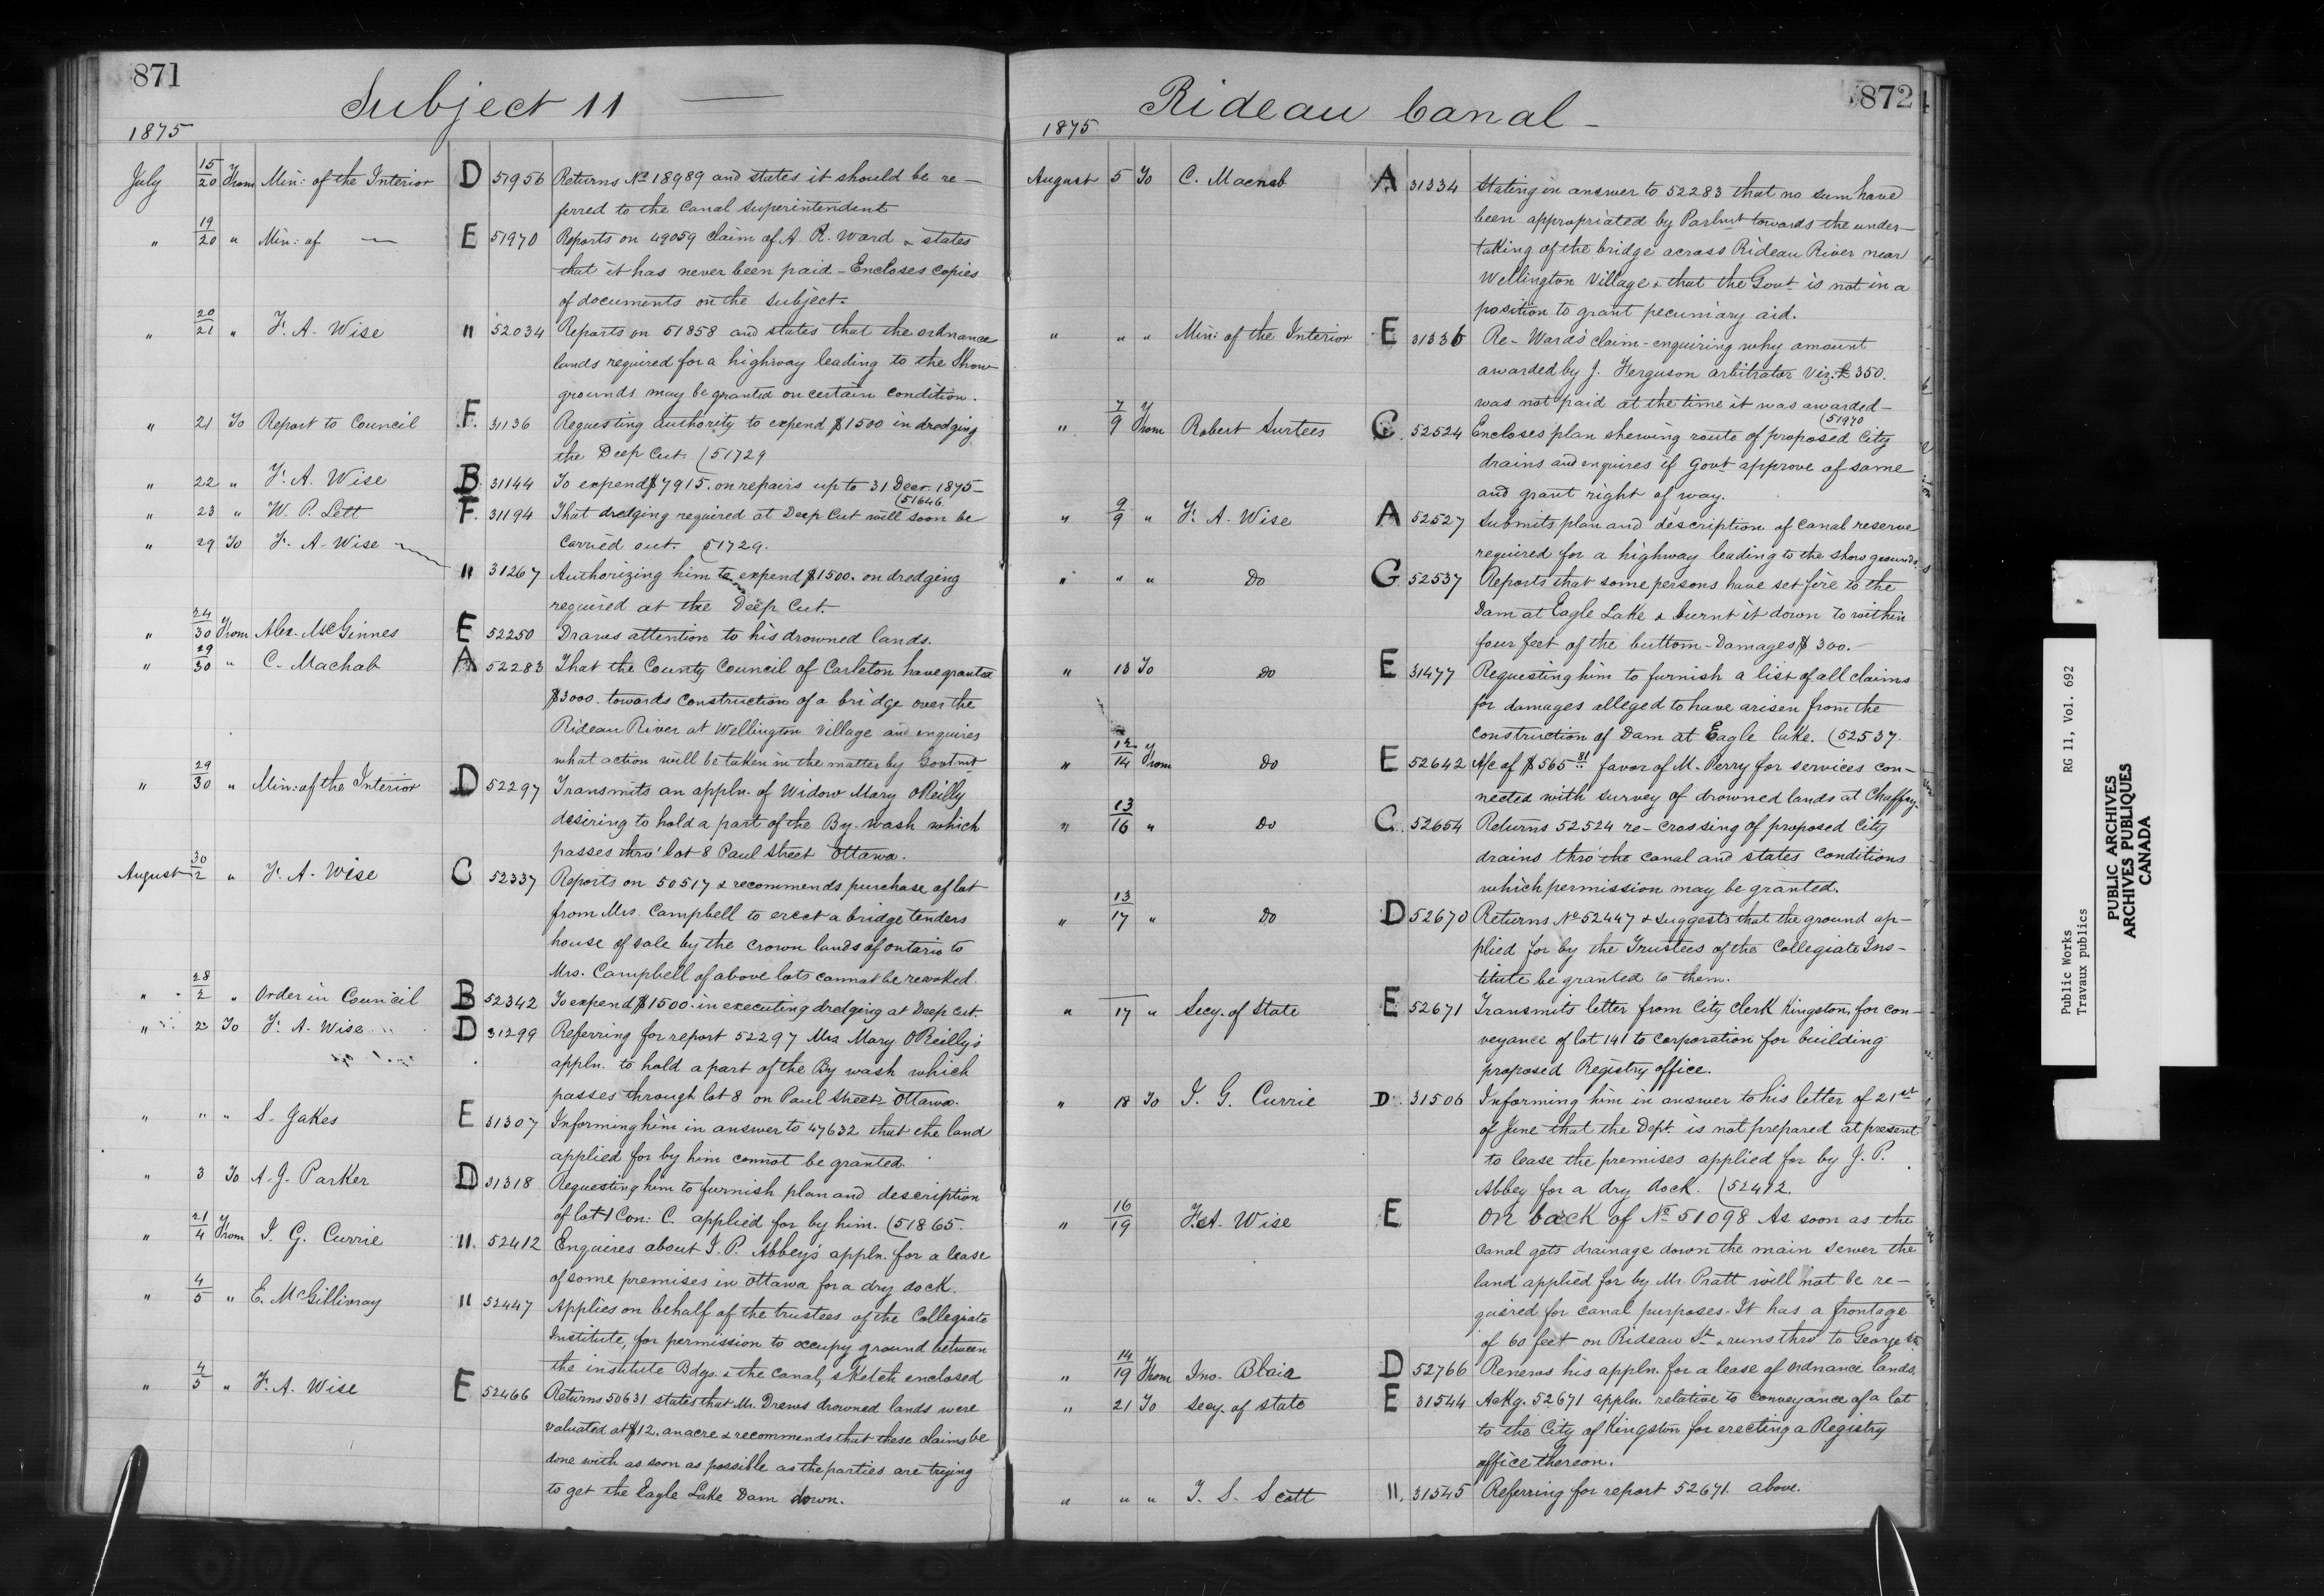 871
Subject 11 —
1875
July 15/20 From Min: of the Interior D 51956 Returns No 18989 and states it should be re-
ferred to the Canal Superintendent
" 19/20 " Min: of — E 51970 Reports on 49059 claim of A. R. Ward & states
that it has never been paid - Encloses copies
of documents on the subject.
" 20/21 " F. A. Wise " 52034 Reports on 51858 and states that the ordnance
lands required for a highway leading to the Show
grounds may be granted on certain condition.
" 21 To Report to Council F. 31136 Requesting authority to expend $1500 in dredging
the Deep Cut. (51729
" 22 " F. A. Wise B. 31144 To expend $7915. on repairs up to 31 Decr. 1875-
(51646
" 23 " W. P. Lett F. 31194 That dredging required at Deep Cut will soon be
carried out. (51729.
" 29 To F. A. Wise " 31267 Authorizing him to expend $1500. on dredging
required at the Deep Cut.
" 24/30 From Alex. McGinnes E 52250 Draws attention to his drowned lands.
" 29/30 " C. Machab A 52283 That the County Council of Carleton have granted
$3000. towards construction of a bridge over the
Rideau River at Wellington Village and enquires
what action will be taken in the matter by Govtmt
" 29/30 " Min: of the Interior D 52297 Transmits an appln. of Widow Mary O'Reilly
desiring to hold a part of the By-wash which
passes thro' lot 8 Paul Street Ottawa.
August 30/2 " F. A. Wise C 52337 Reports on 50517 & recommends purchase of lot
from Mrs. Campbell to erect a bridge tenders
house of sale by the Crown lands of Ontario to
Mrs. Campbell of above lots cannot be revoked.
" 28/2 " Order in Council B 52342 To expend $1500 in executing dredging at Deep Cut.
" 2 To F. A. Wise D 31299 Referring for report 52297 Mrs Mary O'Reilly's
appln. to hold a part of the By wash which
passes through lot 8 on Paul Street Ottawa.
" " " S. Jakes E 31307 Informing him in answer to 47632 that the land
applied for by him cannot be granted.
" 3 To A. J. Parker D 31318 Requesting him to furnish plan and description
of lot 1 Con: C. applied for by him. (51865.
" 21/4 From J. G. Currie ". 52412 Enquires about J. P. Abbey's appln. for a lease
of some premises in Ottawa for a dry dock.
" 4/5 " E. McGillivray " 52447 Applies on behalf of the trustees of the Collegiate
Institute, for permission to occupy ground between
the institute Bdgs. & the Canal, sketch enclosed
" 4/5 " F. A. Wise E 52466 Returns 50631 states that Mr. Drews drowned lands were
valuated at $12. an acre & recommends that these claims be
done with as soon as possible as the parties are trying
to get the Eagle Lake Dam down.
872
Rideau Canal -
1875
August 5 To C. Macnab A 31334 Stating in answer to 52283 that no sum have
been appropriated by Parlmt towards the under-
taking of the bridge across Rideau River near
Wellington Village & that the Govt is not in a
position to grant pecuniary aid.
" " " Min: of the Interior E 31336 Re- Ward's claim - enquiring why amount
awarded by J. Ferguson arbitrator Viz: £350.
was not paid at the time it was awarded-
(51970
" 7/9 From Robert Surtees C. 52524 Encloses plan shewing route of proposed City
drains and enquires if Govt approve of same
and grant right of way.
" 9/9 " F. A. Wise A 52527 Submits plan and description of canal reserve
required for a highway leading to the show grounds.
" " " Do G 52537 Reports that some persons have set fire to the
Dam at Eagle Lake & burnt it down to within
four feet of the buttom - Damages $300.-
" 13 To Do E 31477 Requesting him to furnish a list of all claims
for damages alleged to have arisen from the
construction of Dam at Eagle lake. (52537.
" 12/14 From Do E 52642 A/c of $565 81 favor of M. Perry for services con-
nected with survey of drowned lands at Chaffey.
" 13/16 " Do C. 52654 Returns 52524 re- crossing of proposed City
drains thro' the canal and states conditions
which permission may be granted.
" 13/17 " Do D 52670 Returns No 52447 & suggests that the ground ap-
plied for by the Trustees of the Collegiate Ins-
titute be granted to them.
" 17 " Secy. of State E 52671 Transmits letter from City Clerk Kingston, for con-
veyance of lot 141 to Corporation for building
proposed Registry office.
" 18 To J. G. Currie D. 31506 Informing him in answer to his letter of 21st
of June that the Dept. is not prepared at present
to lease the premises applied for by J. P.
Abbey for a dry dock. (52412.
" 16/19 F. A. Wise E On back of No 51098 As soon as the
canal gets drainage down the main sewer the
land applied for by Mr. Pratt will not be re-
quired for canal purposes. It has a frontage
of 60 feet on Rideau St & runs thro' to George St.
" 14/19 From Jno. Blair D 52766 Renews his appln. for a lease of Ordnance lands.
" 21 To Secy. of State E 31544 Ackg. 52671 appln. relative to conveyance of a lot
to the City of Kingston for erecting a Registry
office thereon.
" " " T. S. Scott ". 31545 Referring for report 52671. above.
Public Works RG 11, Vol. 692
Travaux publics
PUBLIC ARCHIVES
ARCHIVES PUBLIQUES
CANADA